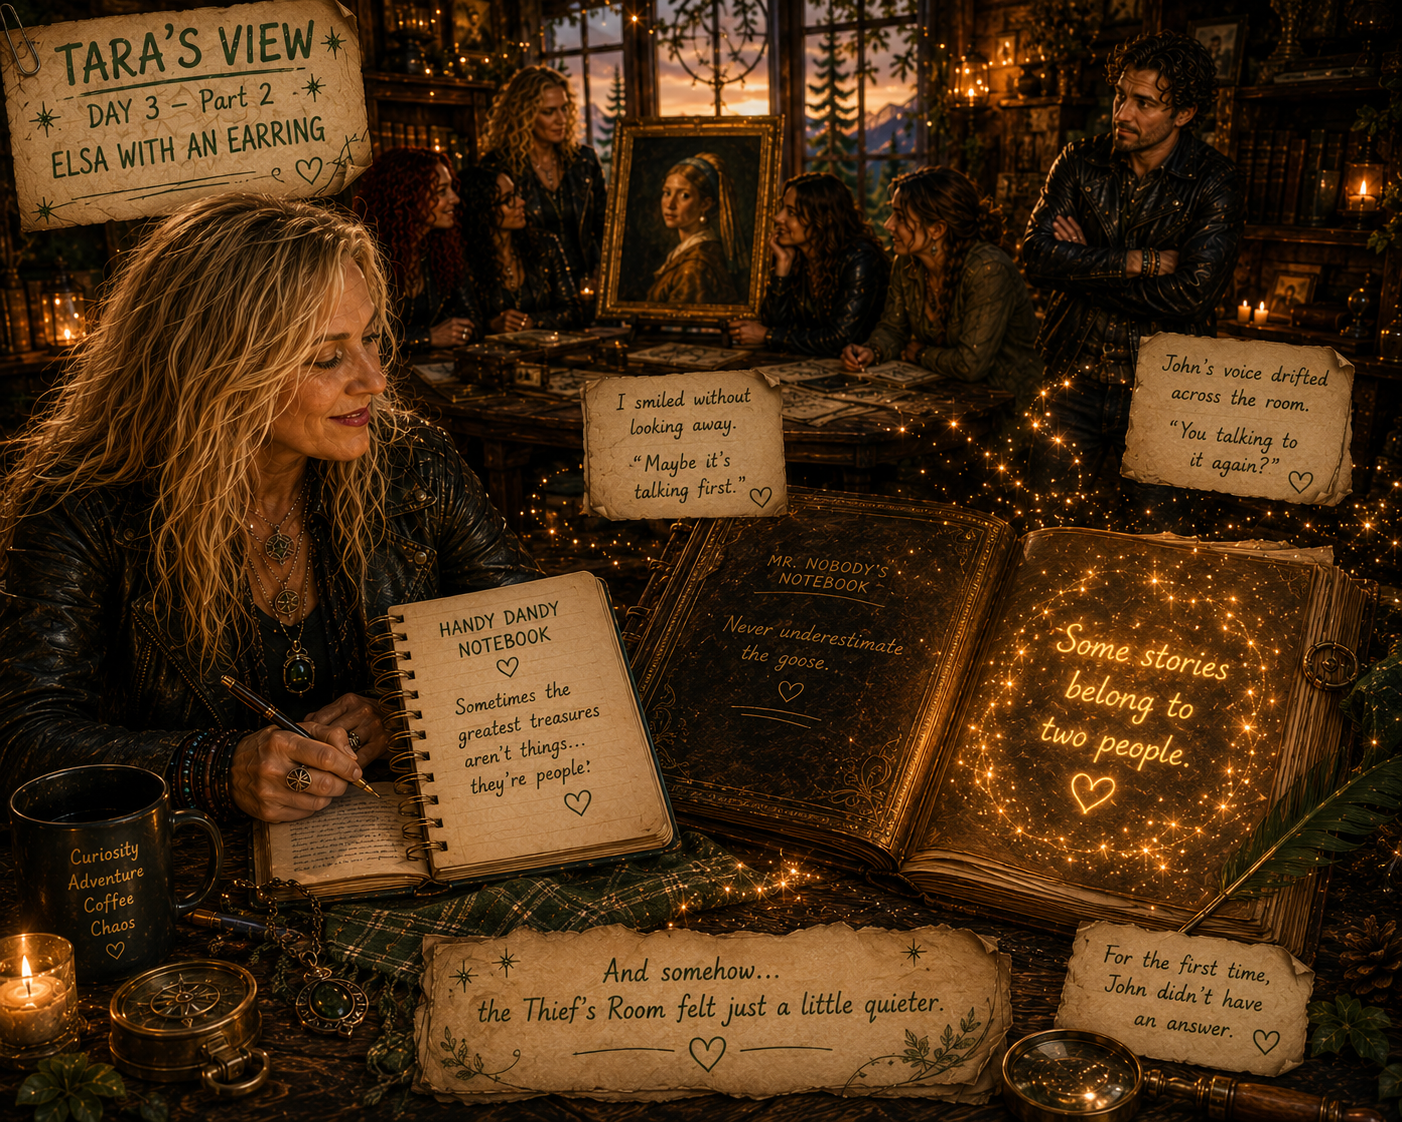 TARA'S VIEW
DAY 3 – Part 2
ELSA WITH AN EARRING
I smiled without
looking away.
"Maybe it's
talking first."
John's voice drifted
across the room.
"You talking to
it again?"
HANDY DANDY
NOTEBOOK
Sometimes the
greatest treasures
aren't things...
they're people.
MR. NOBODY'S
NOTEBOOK
Never underestimate
the goose.
Some stories
belong to
two people.
Curiosity
Adventure
Coffee
Chaos
And somehow...
the Thief's Room felt just a little quieter.
For the first time,
John didn't have
an answer.